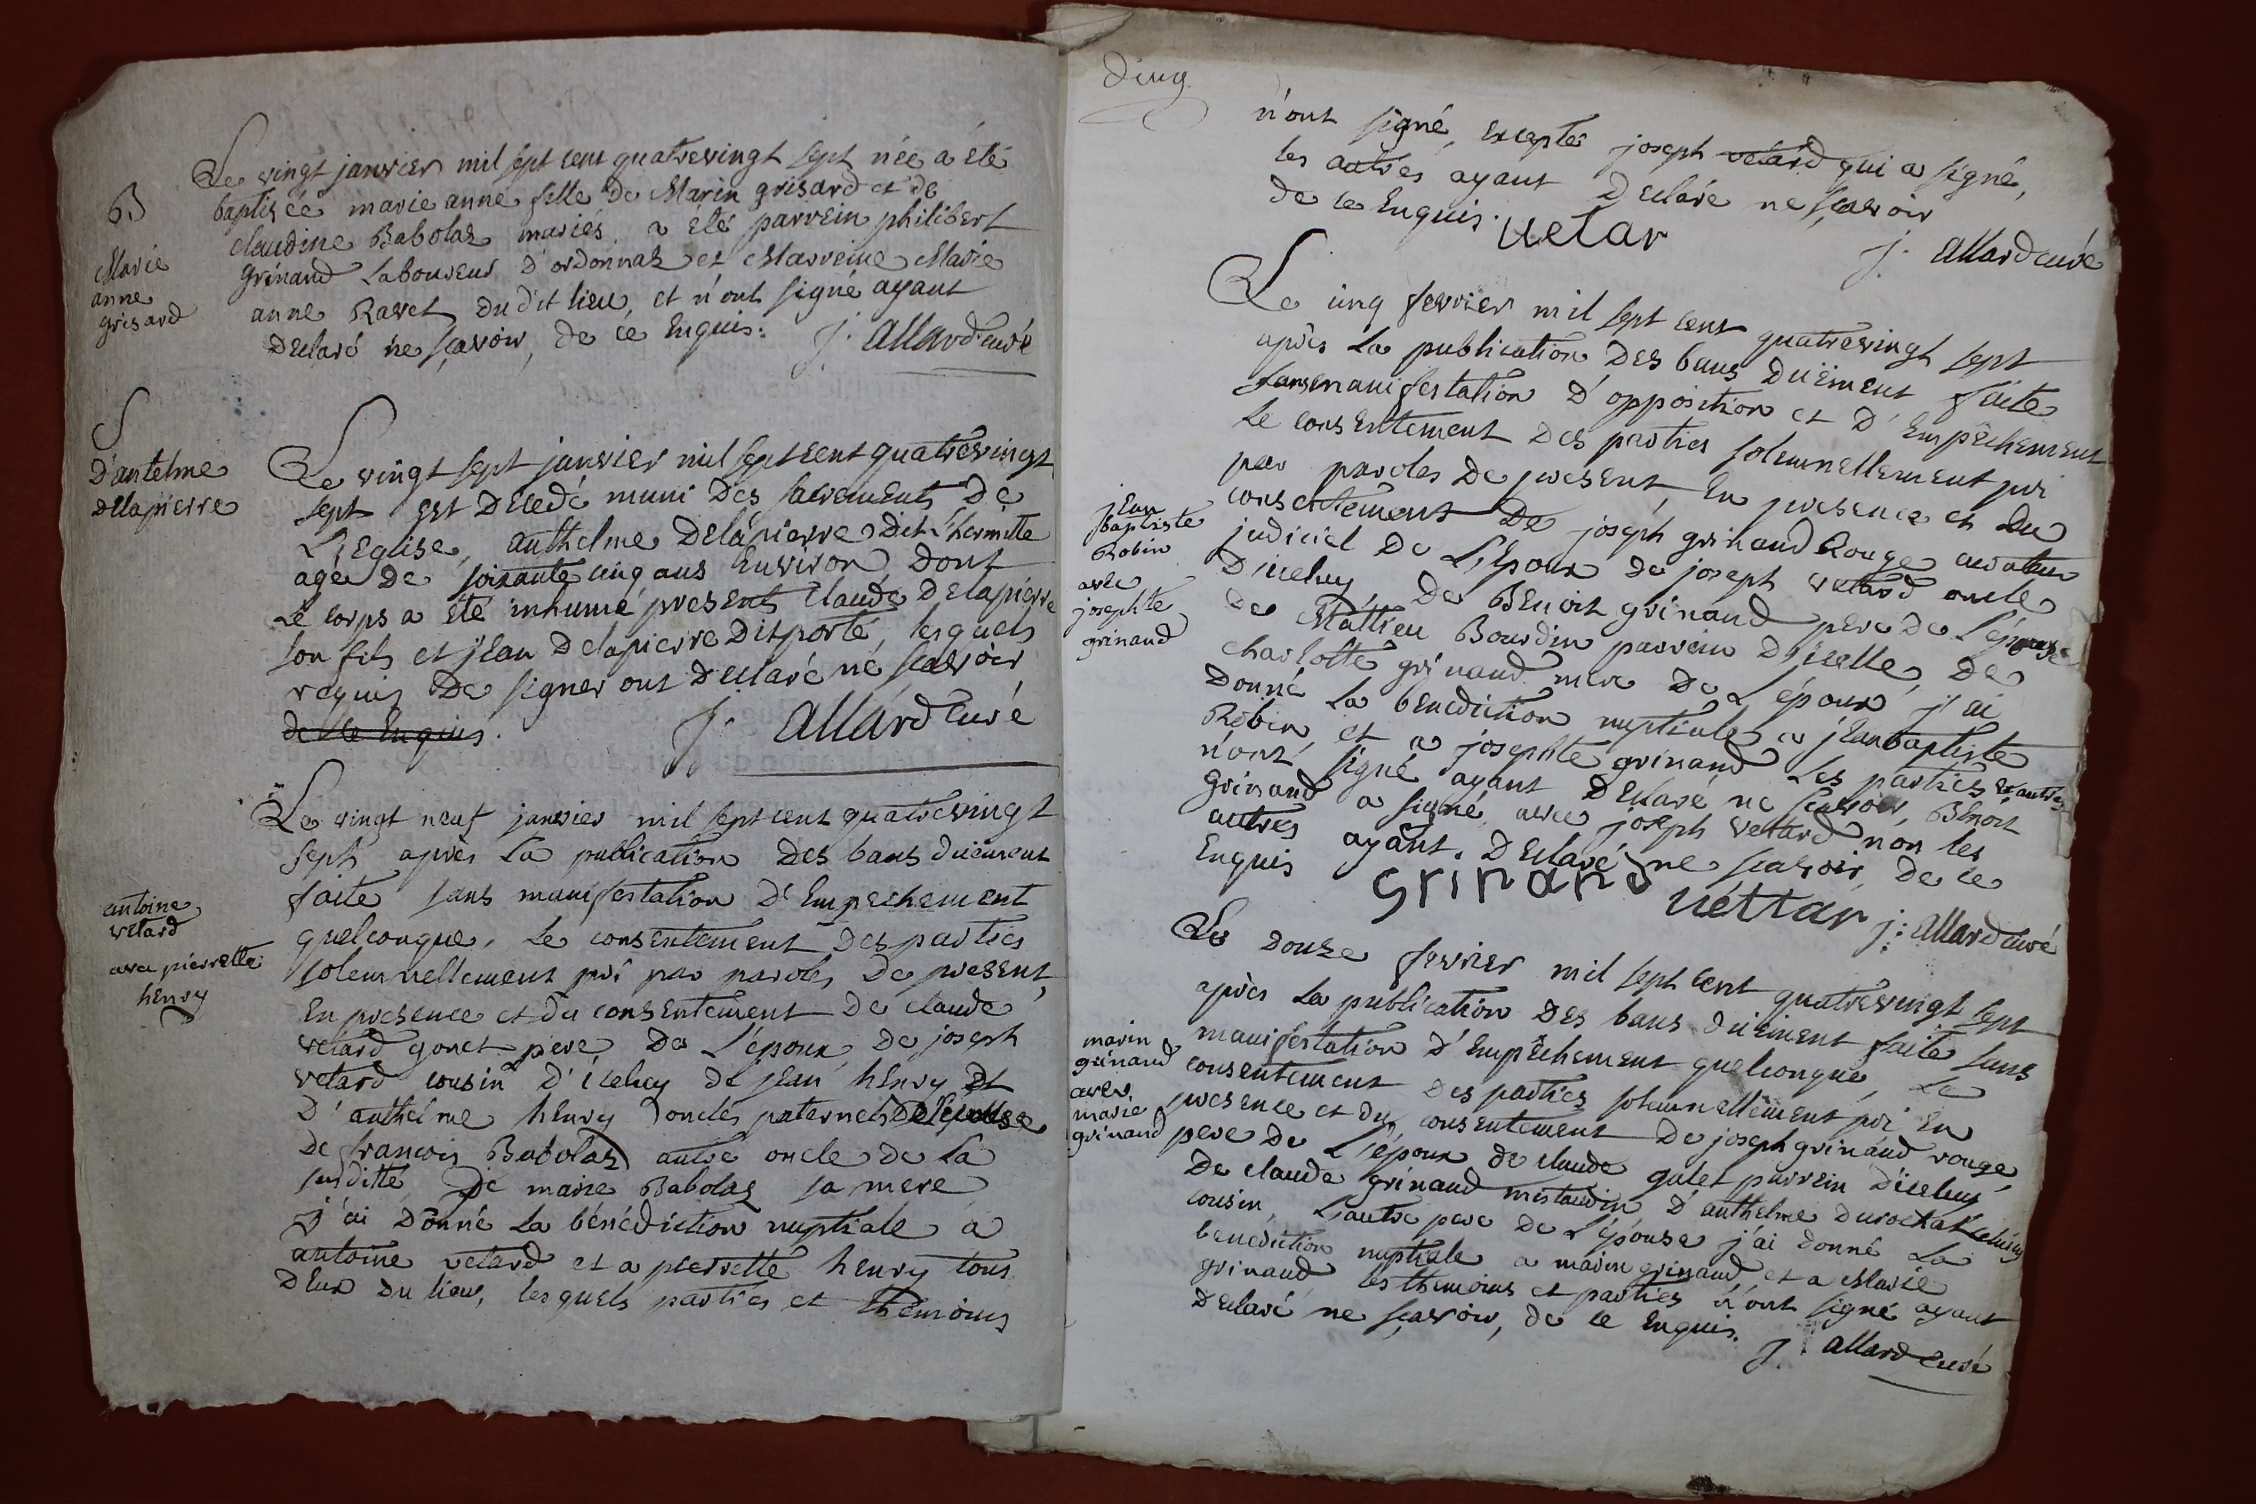 B
Marie
anne
grisard
Le vingt janvier mil sept cent quatrevingt sept née a été
baptisée marie anne fille de Marin grisard et de
claudine Babolaz mariés. a été parrein philibert
grinand Laboureur d'ordonnaz et Marreine Marie
anne Ravet du dit lieu, et n'ont signé ayant
Declaré ne sçavoir, de ce Enquis. j. allard curé
S
D'antelme
Dellapierre
Le vingt sept janvier mil sept cent quatrevingt
sept Est Decedé muni Des sacrements De
L'Eglise, anthelme Delapierre Dit L'hermitte
agé De soixante cinq ans Environ, Dont
Le corps a été inhumé presents claude Delapierre
son fils et jean Delapierre Dit porté, lesquels
requis De signer ont Declaré ne sçavoir
de ce Enquis. j. allard curé
antoine
vetard
avec pierrette
henry
Le vingt neuf janvier mil sept cent quatrevingt
sept après La publication Des bans düement
faite sans manifestation D'Empechement
quelconque, Le consentement Des parties
solemnellement pri par paroles De present,
En presence et du consentement De claude
vetard gonet pere De L'époux, De joseph
vetard cousin D'iceluy De jean henry et
D'anthelme henry oncles paternels De l'épouse
De francois Babolaz autre oncle De La
susditte De marie Babolaz sa mere
j'ai Donné La bénédiction nuptiale a
antoine vetard et a pierrette henry tous
Deux Du lieu, lesquels parties et themoins
Cinq
n'ont signé, Excepté joseph vetard qui a signé,
les autres ayant Declaré ne sçavoir
de ce Enquis. uetar j. allard curé
jean
baptiste
Robin
avec
josephte
grinand
Le cinq fevrier mil sept cent quatrevingt sept
après La publication Des bans Düement faite
sans manifestation D'opposition et D'Empêchement
Le consentement Des parties solemnellement pri
par paroles De present, En presence et du
consentement De joseph grinand Rouge curateur
judiciel De L'époux de joseph vetard oncle
D'iceluy, De Benoit grinand pere De L'épouse
De Mattieu Bourdin parrein D'icelle, De
charlotte grinand mere De L'époux j'ai
Donné La benediction nuptiale a jean baptiste
Robin et a josephte grinand Les parties et autres
n'ont signé ayant Declaré ne sçavoir, Benoit
grinand a signé avec joseph vetard non les
autres ayant Declaré ne sçavoir De ce
Enquis grinand uéttar j. allard curé
marin
grinand
avec
marie
grinand
Le Douze fevrier mil sept cent quatrevingt sept
après La publication Des bans düement faite sans
manifestation D'Empêchement quelconque, Le
consentement Des parties solemnellement pri En
presence et du consentement De joseph grinand rouge
pere De L'époux De claude gulet parrein D'iceluy
De claude grinand mistaudin D'anthelme Durochat
cousin, L'autre pere De L'épouse j'ai donné La
benediction nuptiale a marin grinand, et a Marie
grinand, les themoins et parties n'ont signé ayant
Declaré ne sçavoir, de ce Enquis. j. allard curé